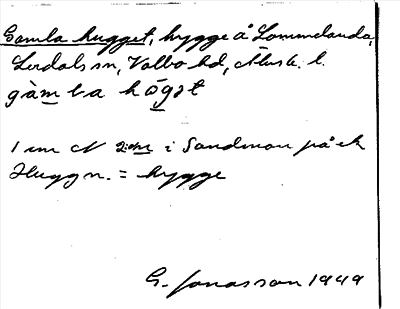 Gamla hugget, hygge å Lommelanda,
Lerdals sn, Valbo hd, Älvsb. l.
gàmla hǿgət
1 m N i Sandmon på ek
Huggn. = hygge
G. Jonasson 1949